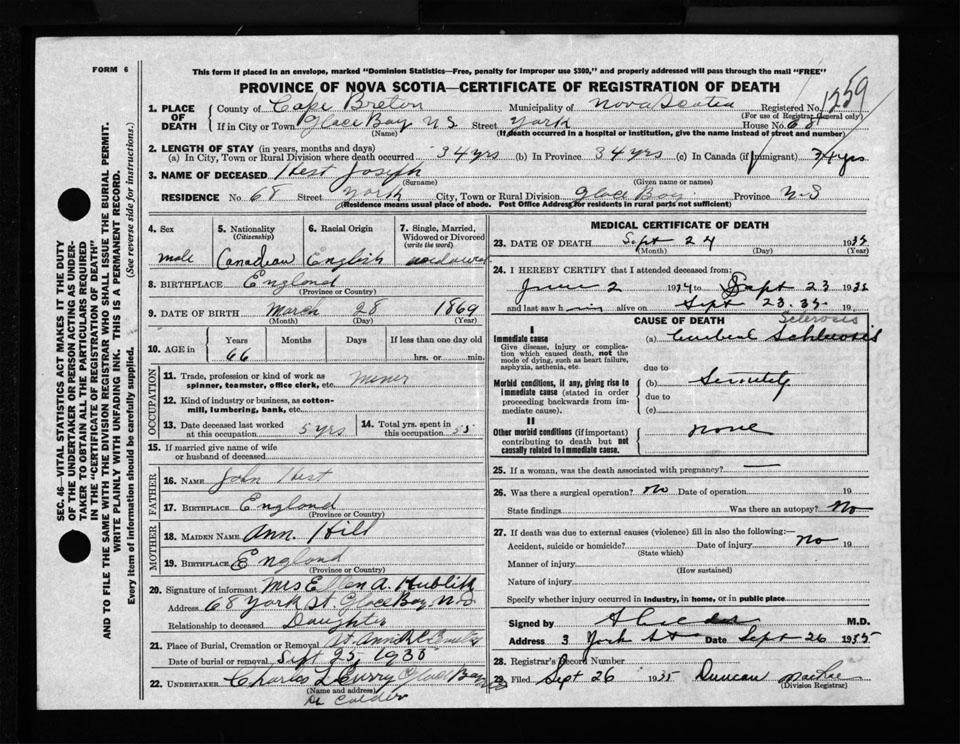 FORM 6
This form if placed in an envelope, marked "Dominion Statistics—Free, penalty for improper use $300," and properly addressed will pass through the mail "FREE"
PROVINCE OF NOVA SCOTIA—CERTIFICATE OF REGISTRATION OF DEATH
1259
SEC. 46—VITAL STATISTICS ACT MAKES IT THE DUTY
OF THE UNDERTAKER OR PERSON ACTING AS UNDER-
TAKER TO OBTAIN ALL THE PARTICULARS REQUIRED
IN THE "CERTIFICATE OF REGISTRATION OF DEATH"
AND TO FILE THE SAME WITH THE DIVISION REGISTRAR WHO SHALL ISSUE THE BURIAL PERMIT.
WRITE PLAINLY WITH UNFADING INK. THIS IS A PERMANENT RECORD.
Every item of information should be carefully supplied. (See reverse side for instructions.)
1. PLACE OF DEATH County of Cape Breton Municipality of Nova Scotia Registered No.
(For use of Registrar General only)
If in City or Town Glace Bay N S Street York House No. 68
(Name) (If death occurred in a hospital or institution, give the name instead of street and number)
2. LENGTH OF STAY (in years, months and days)
(a) In City, Town or Rural Division where death occurred 34 yrs (b) In Province 34 yrs (c) In Canada (if immigrant) 34 yrs
3. NAME OF DECEASED Hest Joseph
(Surname) (Given name or names)
RESIDENCE No. 68 Street York City, Town or Rural Division Glace Bay Province N-S
(Residence means usual place of abode. Post Office Address for residents in rural parts not sufficient)
4. Sex 5. Nationality (Citizenship) 6. Racial Origin 7. Single, Married, Widowed or Divorced (write the word)
male Canadian English widower
8. BIRTHPLACE England
(Province or Country)
9. DATE OF BIRTH March 28 1869
(Month) (Day) (Year)
10. AGE in Years Months Days If less than one day old
66 hrs. or min.
OCCUPATION
11. Trade, profession or kind of work as spinner, teamster, office clerk, etc. miner
12. Kind of industry or business, as cotton-mill, lumbering, bank, etc.
13. Date deceased last worked at this occupation 5 yrs 14. Total yrs. spent in this occupation 55
15. If married give name of wife or husband of deceased
FATHER
16. NAME John Hest
17. BIRTHPLACE England
(Province or Country)
MOTHER
18. MAIDEN NAME Ann. Hill
19. BIRTHPLACE England
(Province or Country)
20. Signature of informant Mrs Ellen A.
Address 68 York St. Glace Bay N.S
Relationship to deceased Daughter
21. Place of Burial, Cremation or Removal
Date of burial or removal Sept 25, 1935
22. UNDERTAKER Charles L Curry Glace Bay
(Name and address)
Dr Calder
MEDICAL CERTIFICATE OF DEATH
23. DATE OF DEATH Sept 24 1935
(Month) (Day) (Year)
24. I HEREBY CERTIFY that I attended deceased from:
June 2 1934 to Sept 23 1935
and last saw h im alive on Sept 23. 35.
CAUSE OF DEATH
Sclerosis
I
Immediate cause (a)
Give disease, injury or complication which caused death, not the mode of dying, such as heart failure, asphyxia, asthenia, etc.
due to
Morbid conditions, if any, giving rise to immediate cause (stated in order proceeding backwards from immediate cause). (b)
due to
(c)
II
Other morbid conditions (if important) contributing to death but not causally related to immediate cause. none
25. If a woman, was the death associated with pregnancy? —
26. Was there a surgical operation? No Date of operation 19
State findings Was there an autopsy? No
27. If death was due to external causes (violence) fill in also the following:—
Accident, suicide or homicide? Date of injury No 19
(State which)
Manner of injury
(How sustained)
Nature of injury
Specify whether injury occurred in industry, in home, or in public place
Signed by M.D.
Address 3 York St Date Sept 26 1935
28. Registrar's Record Number
29. Filed Sept 26 1935 Duncan MacRae
(Division Registrar)